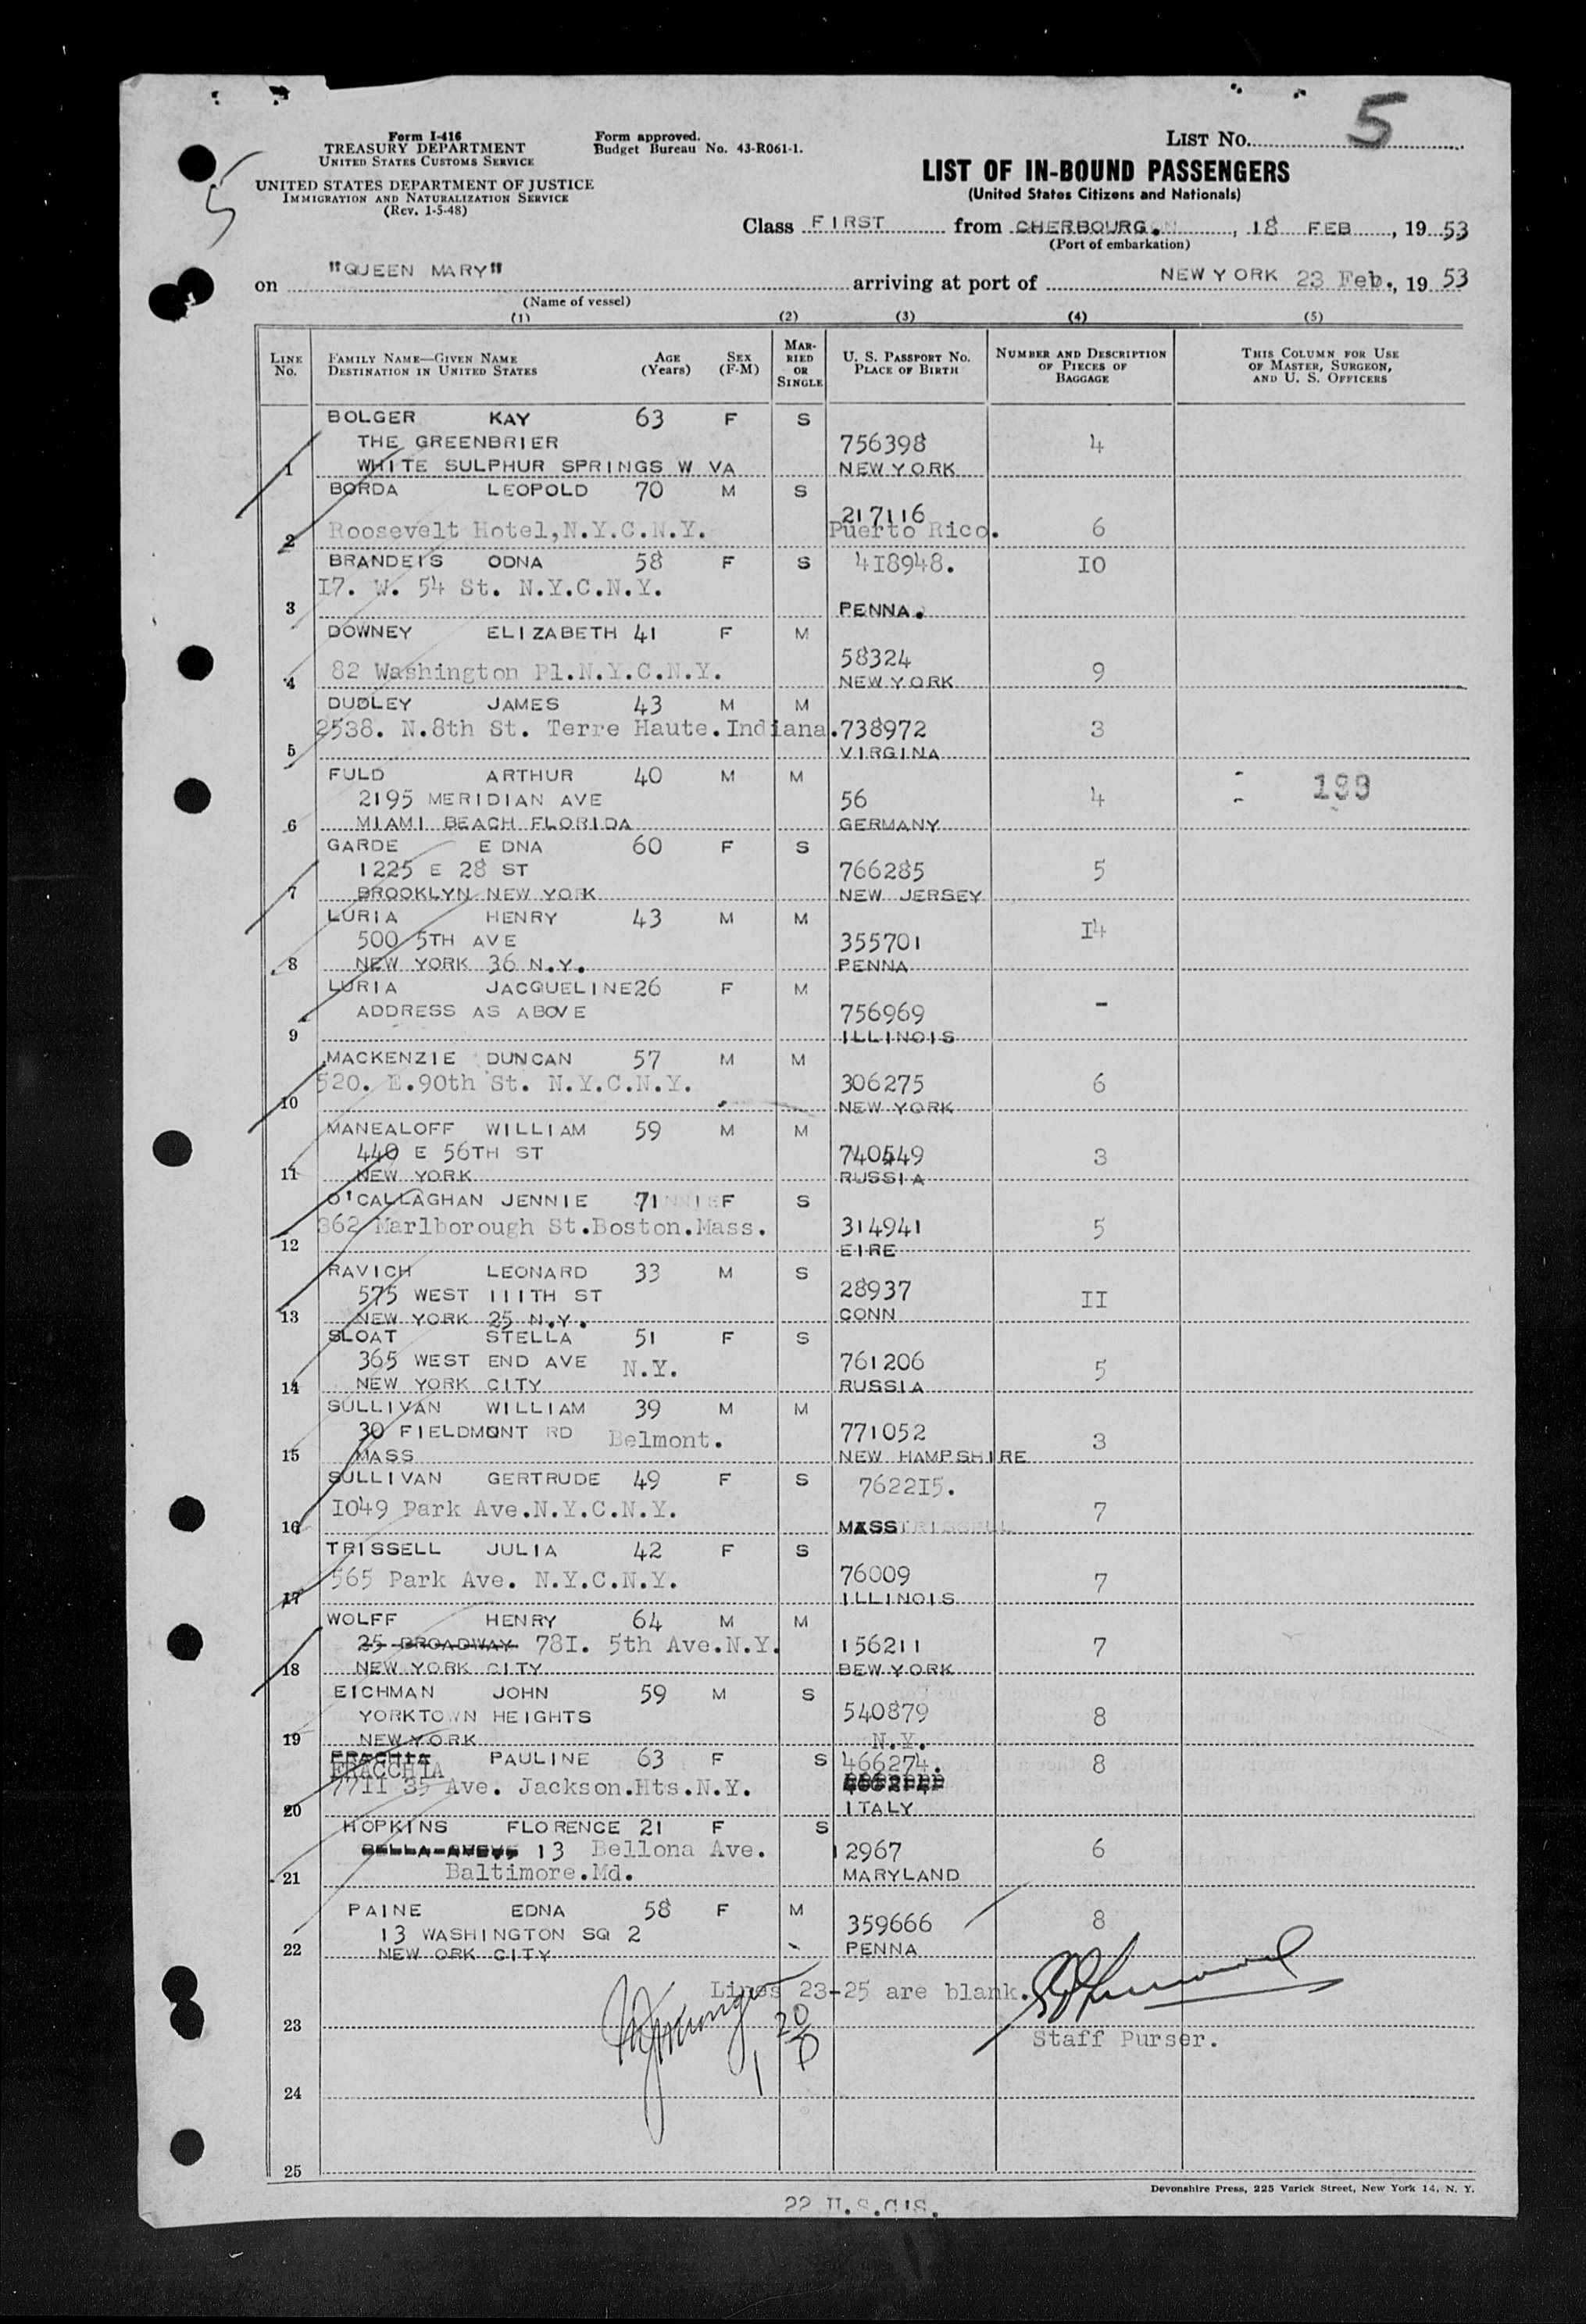 5
Form I-416
TREASURY DEPARTMENT
UNITED STATES CUSTOMS SERVICE
UNITED STATES DEPARTMENT OF JUSTICE
IMMIGRATION AND NATURALIZATION SERVICE
(Rev. 1-5-48)
Form approved.
Budget Bureau No. 43-R061-1.
LIST No. 5
LIST OF IN-BOUND PASSENGERS
(United States Citizens and Nationals)
Class FIRST from CHERBOURG. , 18 FEB , 19 53
(Port of embarkation)
on "QUEEN MARY" arriving at port of NEW YORK 23 Feb., 19 53
(Name of vessel)
(1) (2) (3) (4) (5)
LINE No. FAMILY NAME—GIVEN NAME DESTINATION IN UNITED STATES AGE (Years) SEX (F-M) MARRIED OR SINGLE U. S. PASSPORT No. PLACE OF BIRTH NUMBER AND DESCRIPTION OF PIECES OF BAGGAGE THIS COLUMN FOR USE OF MASTER, SURGEON, AND U. S. OFFICERS
BOLGER KAY 63 F S
THE GREENBRIER 756398 4
1 WHITE SULPHUR SPRINGS W VA NEW YORK
BORDA LEOPOLD 70 M S
217116
2 Roosevelt Hotel,N.Y.C.N.Y. Puerto Rico. 6
BRANDEIS ODNA 58 F S 418948. 10
17. W. 54 St. N.Y.C.N.Y.
3 PENNA.
DOWNEY ELIZABETH 41 F M
58324
4 82 Washington Pl.N.Y.C.N.Y. NEW YORK 9
DUDLEY JAMES 43 M M
2538. N.8th St. Terre Haute.Indiana. 738972 3
5 VIRGINA
FULD ARTHUR 40 M M
2195 MERIDIAN AVE 56 4 199
6 MIAMI BEACH FLORIDA GERMANY
GARDE EDNA 60 F S
1225 E 28 ST 766285 5
7 BROOKLYN NEW YORK NEW JERSEY
LURIA HENRY 43 M M
500 5TH AVE 355701 14
8 NEW YORK 36 N.Y. PENNA
LURIA JACQUELINE 26 F M
ADDRESS AS ABOVE 756969 -
9 ILLINOIS
MACKENZIE DUNCAN 57 M M
520. E.90th St. N.Y.C.N.Y. 306275 6
10 NEW YORK
MANEALOFF WILLIAM 59 M M
440 E 56TH ST 740549 3
11 NEW YORK RUSSIA
O'CALLAGHAN JENNIE 71 F S
362 Marlborough St.Boston.Mass. 314941 5
12 EIRE
RAVICH LEONARD 33 M S
575 WEST 111TH ST 28937 11
13 NEW YORK 25 N.Y. CONN
SLOAT STELLA 51 F S
365 WEST END AVE N.Y. 761206 5
14 NEW YORK CITY RUSSIA
SULLIVAN WILLIAM 39 M M
30 FIELDMONT RD Belmont. 771052 3
15 MASS NEW HAMPSHIRE
SULLIVAN GERTRUDE 49 F S 762215.
1049 Park Ave.N.Y.C.N.Y. 7
16 MASS
TRISSELL JULIA 42 F S
565 Park Ave. N.Y.C.N.Y. 76009 7
17 ILLINOIS
WOLFF HENRY 64 M M
25 BROADWAY 781. 5th Ave.N.Y. 156211 7
18 NEW YORK CITY BEW YORK
EICHMAN JOHN 59 M S
YORKTOWN HEIGHTS 540879 8
19 NEW YORK N.Y.
ERACHIA PAULINE 63 F S 466274. 8
FRACCHIA
7711 35 Ave. Jackson.Hts.N.Y.
20 ITALY
HOPKINS FLORENCE 21 F S
13 Bellona Ave. 12967 6
21 Baltimore.Md. MARYLAND
PAINE EDNA 58 F M
13 WASHINGTON SQ 2 359666 8
22 NEW ORK CITY PENNA
Lines 23-25 are blank.
23 20
Staff Purser.
24
25
Devonshire Press, 225 Varick Street, New York 14, N. Y.
22 U.S.CIS.